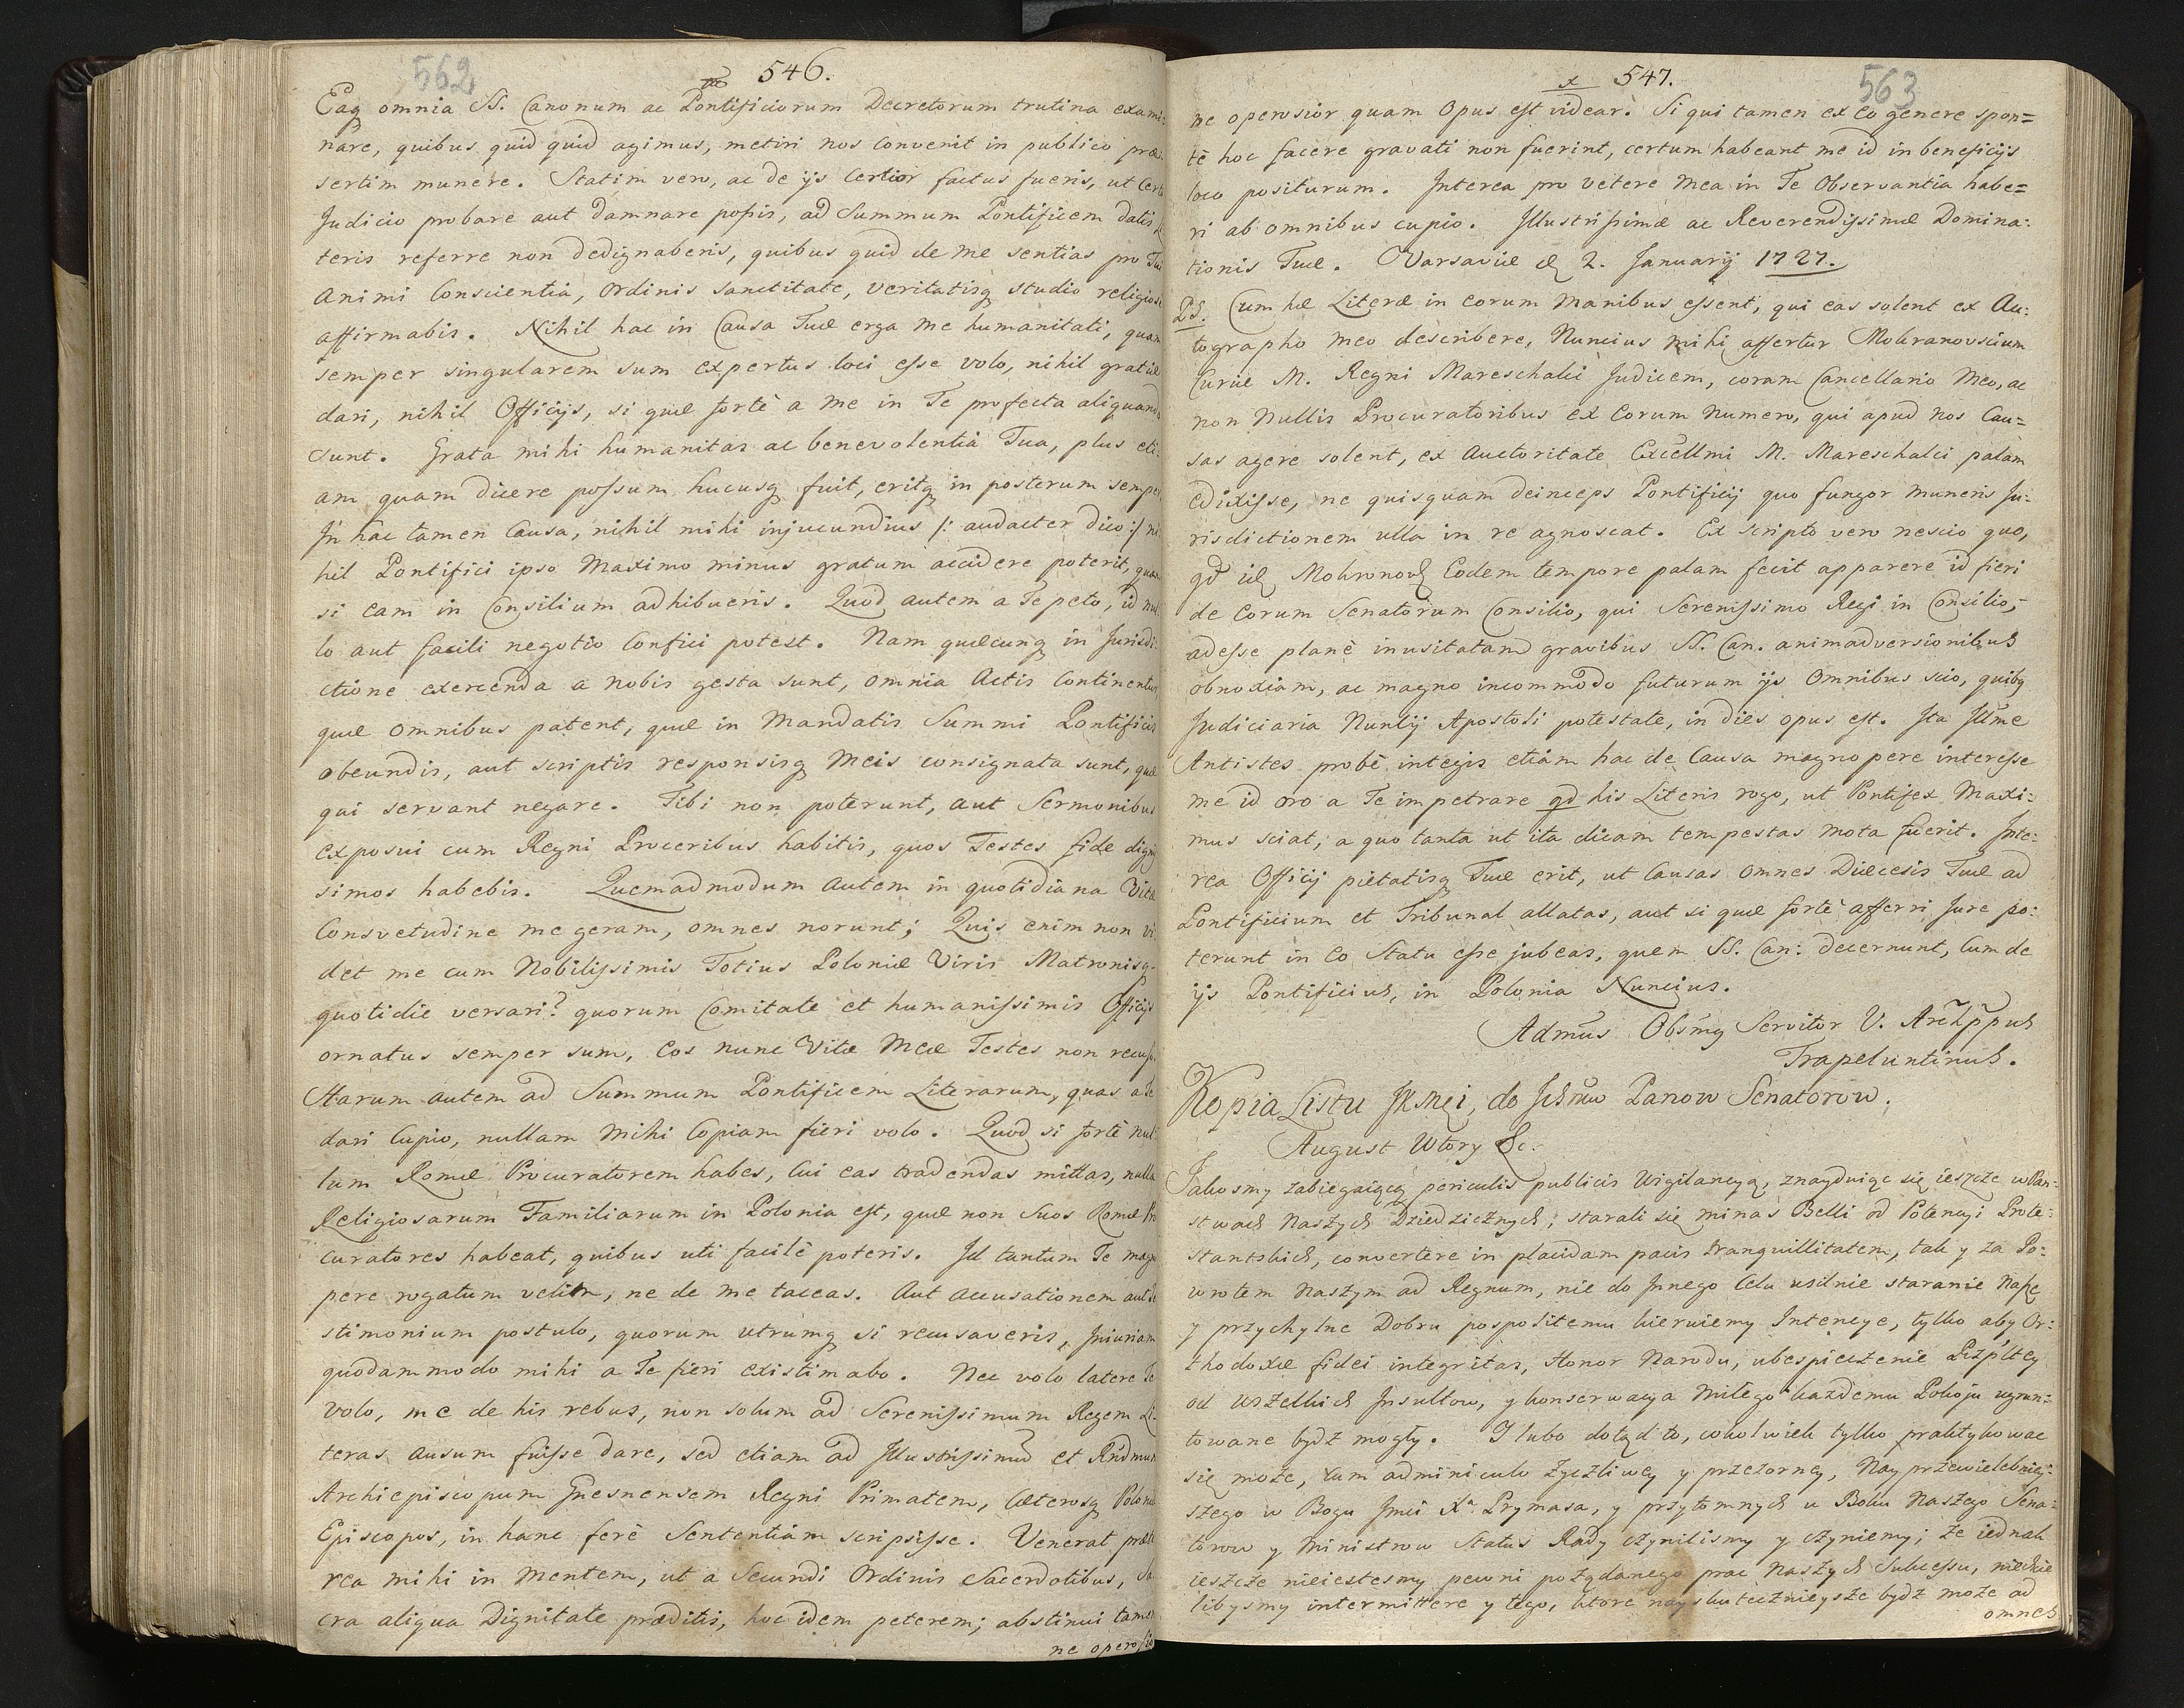 562
546.
Eaq omnia SS. Canonum ac Pontificiorum Decretorum trutina exami:
nare, quibus quid quid agimus, metiri nos convenit in publico præ
sertim munere. Statim vero, ac de ijs Certior factus fueris, ut Certo
Judicio probare aut damnare possis, ad Summum Pontificem datis
teris referre non dedignaberis, quibus quid de me sentias pro Tui
animi Conscientia, Ordinis sanctitate, veritatisq studio religiose
affirmabis. Nihil hac in Causa Tuæ erga me humanitati, quam
semper singularem sum expertus loci esse volo, nihil gratiæ
dari, nihil Officijs, si quæ fortè a me in Te profecta aliquando
sunt. Grata mihi humanitas ac benevolentia Tua, plus eti:
am quam dicere possum hucusq fuit, eritq in posterum semper
In hac tamen Causa, nihil mihi injucundius /: audacter dico :/ ni
hil Pontifici ipso Maximo minus gratum accidere poterit, quam
si eam in Consilium adhibueris. Quod autem a Te peto, id nul
lo aut facili negotio Confici potest. Nam quæcunq in Jurisdi:
ctione exercenda a nobis gesta sunt, omnia Actis Continentur
quæ omnibus patent, quæ in Mandatis Summi Pontificis
obeundis, aut scriptis responsisq Meis consignata sunt, quæ
qui servant negare. Tibi non poterunt, aut Sermonibus
exposui cum Regni Proceribus habitis, quos Testes fide digni
simos habebis. Quemadmodum autem in quotidiana Vita
Consvetudine me geram, omnes norunt; Quis enim non vi:
det me cum Nobilissimis Totius Poloniæ Viris Matronisq
quotidie versari? quorum Comitate et humanissimis Officijs
ornatus semper sum, Eos nunc Vitæ Meæ Testes non recuso.
Harum autem ad Summum Pontificem Literarum, quas a Te
dari Cupio, nullam Mihi Copiam fieri volo. Quod si fortè nul:
lum Romæ Procuratorem habes, Cui eas tradendas mittas, nulla
Religiosarum Familiarum in Polonia est, quæ non Suos Romæ Pro
curatores habeat, quibus uti facilè poteris. Id tantum Te magno
pere rogatum velim, ne de me taceas. Aut accusationem aut Te
stimonium postulo, quorum utrumq si recusaveris, Injuriam
quodammodo mihi a Te fieri existimabo. Nec volo latere Te
volo, me de his rebus, non solum ad Serenissimum Regem Li:
teras ausum fuisse dare, sed etiam ad Illustrissimum et Rndmum
Archiepiscopum Gnesnensem Regni Primatem, Cæterosq Poloniæ
Episcopos, in hanc ferè Sententiam scripsisse. Venerat præte
rea mihi in mentem, ut a Secundi Ordinis Sacerdotibus, Sa
cra aliqua Dignitate præditis, hoc idem peterem; abstinui tamen
ne operosio
547.
563
ne operosior quam Opus est videar. Si qui tamen ex Eo genere spon=
tè hoc facere gravati non fuerint, certum habeant me id in beneficijs
loco positurum. Interea pro vetere Mea in Te Observantia habe=
ri ab omnibus cupio. Illustrissimæ ac Reverendissimæ Domina:
tionis Tuæ. Varsaviæ d 2. Januarij 1727.
PS. Cum hæ Literæ in eorum Manibus essent, qui eas solent ex Au:
tographo meo describere, Nuncius mihi affertur Mokranovscium
Curiæ M. Regni Mareschalci Judicem, coram Cancellario Meo, ac
non Nullis Procuratoribus ex eorum numero, qui apud nos Cau=
sas agere solent, ex auctoritate Excellmi M. Mareschalci palam
edixisse, ne quisquam deinceps Pontificij quo fungor muneris Ju:
risdictionem ulla in re agnoscat. Ex scripto vero nescio quo,
qd Mokronow Eodem tempore palam fecit apparere id fieri
de eorum Senatorum Consilio, qui Serenissimo Regi in Consilio,
adesse planè inusitatam gravibus SS. Can. animadversionibus
obnoxiam, ac magno incommodo futurum ijs Omnibus scio, quibq
Judiciaria Nuntij Apostoli potestate, in dies opus est. Ita Illme
Antistes probè integis etiam hac de Causa magnopere interesse
me id oro a Te impetrare qd his Literis rogo, ut Pontifex Maxi:
mus sciat, a quo tanta ut ita dicam tempestas mota fuerit. Inte:
rea Officij pietatisq Tuæ erit, ut Causas omnes Diæcesis Tuæ ad
Pontificium et Tribunal allatas, aut si quæ fortè afferri Jure po:
terunt in Eo Statu esse jubeas, quem SS. Can: decernunt, Cum de
ijs Pontificius, in Polonia Nuncius.
Admus Obsmq Servitor V. Archppus
Trapeluntinus.
Kopia Listu JKMci, do Ichmciow Panow Senatorow.
August Wtory &c.
Jakosmy zabiegaiącą periculis publicis Wigilancyą, znayduiąc się ieszcze w Pań:
stwach Naszych Dziedzicznych, starali się minas Belli od Potencyi Prote:
stantskich, convertere in placidam pacis tranquillitatem, tak y za Po:
wrotem Naszym ad Regnum, nie do Innego Celu usilnie staranie Nasze
y przychylne Dobru pospolitemu kieruiemy Intencye, tylko aby Or:
thodoxæ fidei integritas, Honor Narodu, ubespieczenie Rzpltey
od Wszelkich Insultow, y konserwacya Miłego każdemu Pokoju ugrun:
towane bydz mogły. I lubo dotąd to, cokolwiek tylko praktykowac
się może, cum adminiculo życzliwey y przezorney, Nayprzewielebniey:
szego w Bogu Jmci Xa. Prymasa, y przytomnych u Boku Naszego Sena:
torow y Ministrow Status Rady czynilismy y czyniemy; że iednak
ieszcze nieiestesmy pewni pożądanego prac Naszych Sukcessu, niechcie
libysmy intermittere y tego, ktore nayskutecznieysze bydz może ad
omnes